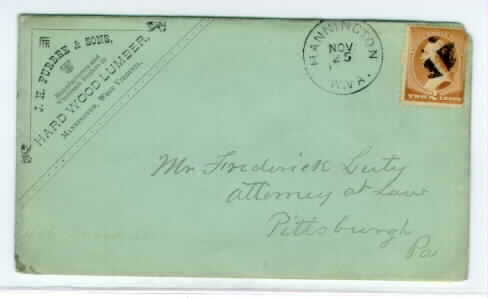 J. H. FURBEE & SONS,
Manufacturers and
Wholesale Dealers in
HARD WOOD LUMBER,
MANNINGTON, WEST VIRGINIA.
MANNINGTON
NOV
25
W.VA.
TWO CENTS
Mr Frederick Luty
Attorney at Law
Pittsburgh
Pa